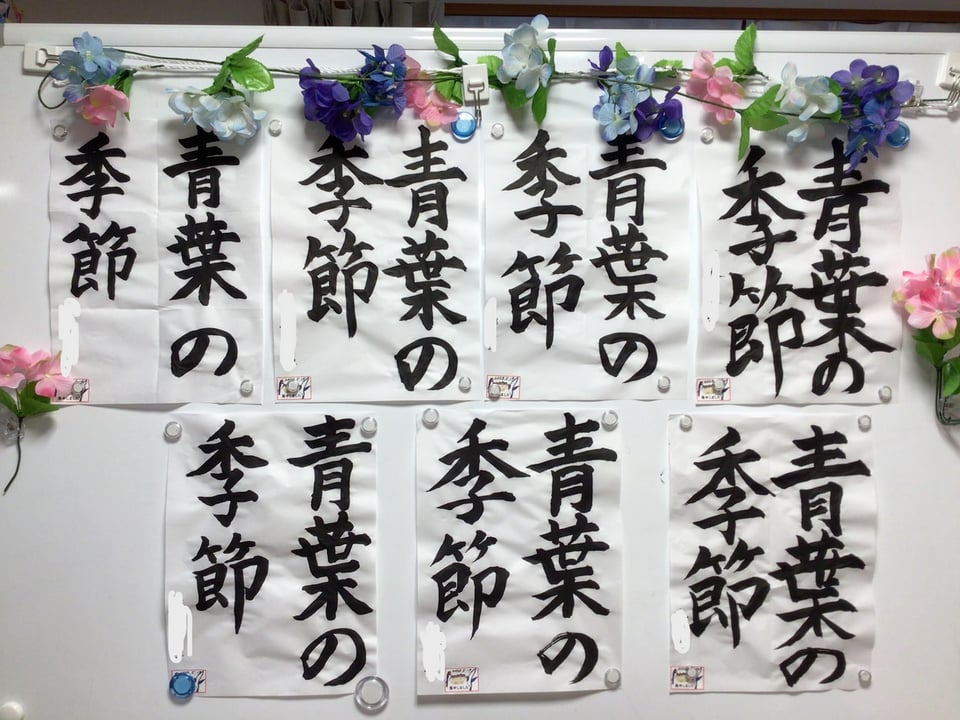 青葉の
季節
青葉の
季節
青葉の
季節
青葉の
季節
青葉の
季節
青葉の
季節
青葉の
季節